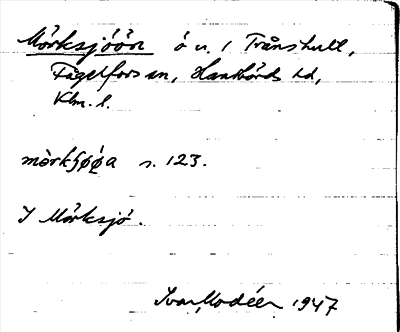 Mörksjöön ö u. / Trånshult,
Fågelfors sn, Handbörds hd,
Klm. l.
mörkʃø̀ǿa s. 123.
I Mörksjö.
Ivar Modéer 1947